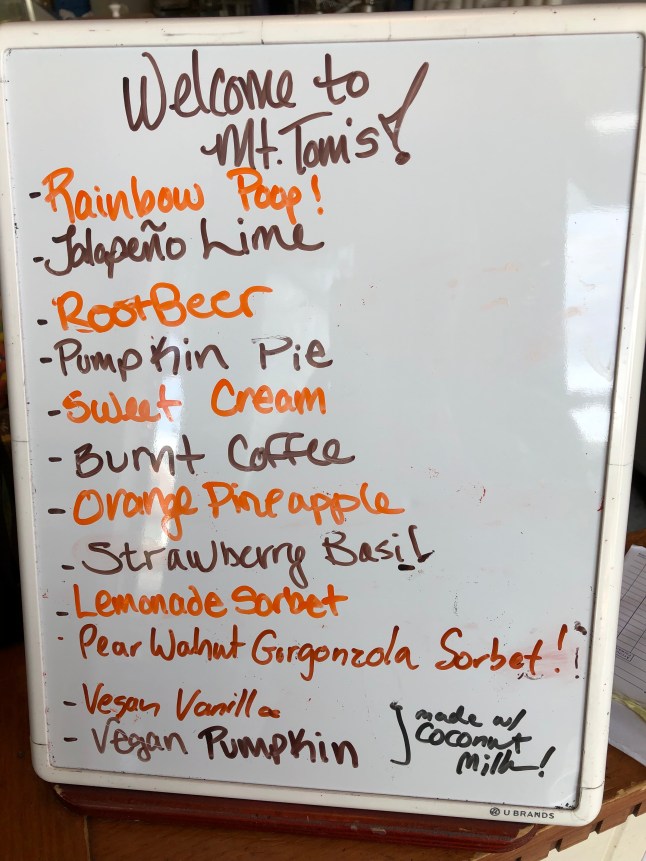 Welcome to
Mt. Tom's!
- Rainbow Poop!
- Jalapeño Lime
- RootBeer
- Pumpkin Pie
- Sweet Cream
- Burnt Coffee
- Orange Pineapple
- Strawberry Basil
- Lemonade Sorbet
- Pear Walnut Gorgonzola Sorbet!!
- Vegan Vanilla
- Vegan Pumpkin
made w/
Coconut
Milk!
U BRANDS